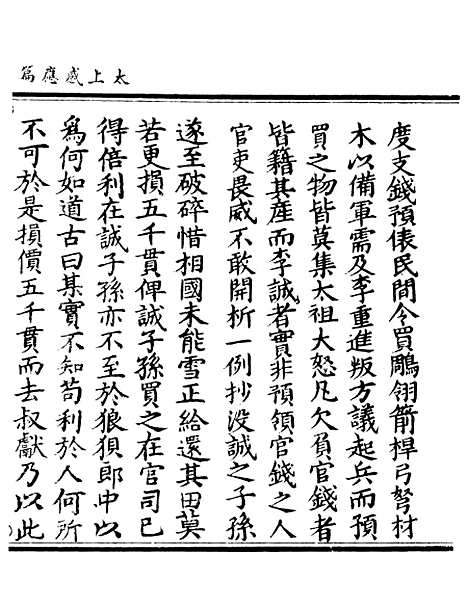 太上感應篇
度支錢預俵民間令買鵰翎箭桿弓弩材
木以備軍需及李重進叛方議起兵而預
買之物皆莫集太祖大怒凡欠負官錢者
皆籍其產而李誠者實非預領官錢之人
官吏畏威不敢開析一例抄没誠之子孫
遂至破碎惜相國未能雪正給還其田莫
若更損五千貫俾誠子孫買之在官司已
得倍利在誠子孫亦不至於狼狽郎中以
爲何如道古曰某實不知苟利於人何所
不可於是損價五千貫而去叔獻乃以此